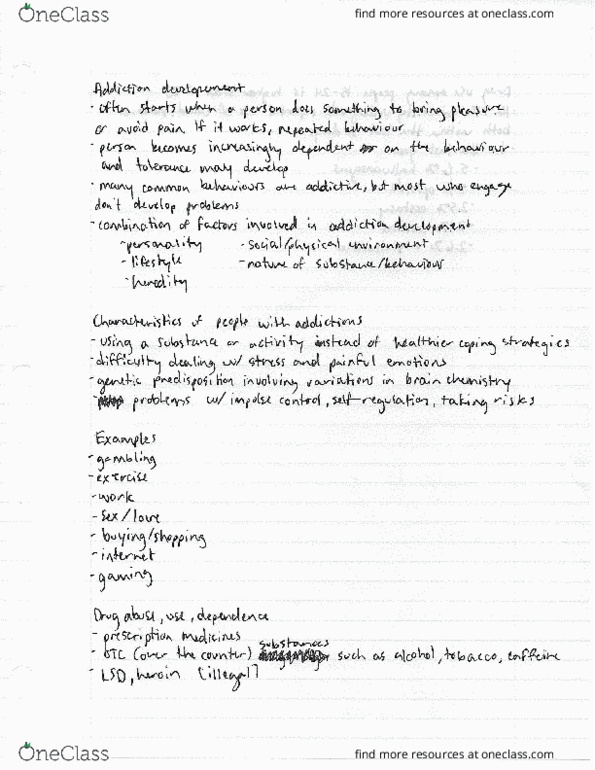 OneClass
find more resources at oneclass.com
Addiction developement
- often starts when a person does something to bring pleasure
or avoid pain. If it works, repeated behaviour
- person becomes increasingly dependent on the behaviour
and tolerance may develop
- many common behaviours are addictive, but most who engage
don't develop problems
- combination of factors involved in addiction development
- personality - social/physical environment
- lifestyle - nature of substance/behaviour
- heredity
Characteristics of people with addictions
- using a substance or activity instead of healthier coping strategies
- difficulty dealing w/ stress and painful emotions
- genetic predisposition involving variations in brain chemistry
- problems w/ impulse control, self-regulation, taking risks
Examples
- gambling
- exercise
- work
- sex/love
- buying/shopping
- internet
- gaming
Drug abuse, use, dependence
- prescription medicines
- OTC (over the counter) substances such as alcohol, tobacco, caffeine
- LSD, heroin [illegal]
OneClass
find more resources at oneclass.com